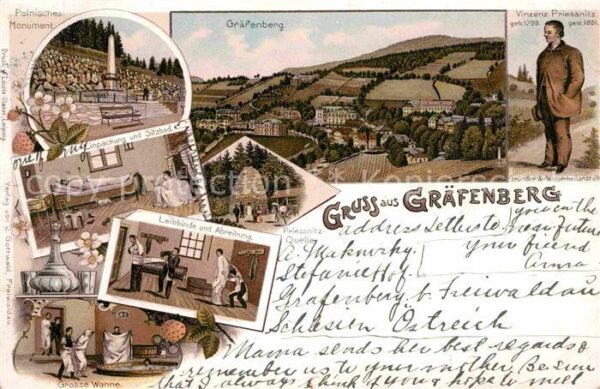 Polnisches
Monument.
Gräfenberg.
Vinzenz Priessnitz
geb. 1799. gest. 1851.
Gründer d. Wasserheilanstalt.
Einpackung und Sitzbad.
Priessnitz-
Quelle.
Leibbinde und Abreibung.
Grosse Wanne.
Verlag von J. Gottwald, Freiwaldau.
GRUSS AUS GRÄFENBERG
you in the
address letters to near future
your friend
Anna
Stefaniehof.
Gräfenberg b. Freiwaldau
Schlesien Östreich
Mama sends her best regards &
remember us to your mother, Be sure
that I always think of you & hope to meet